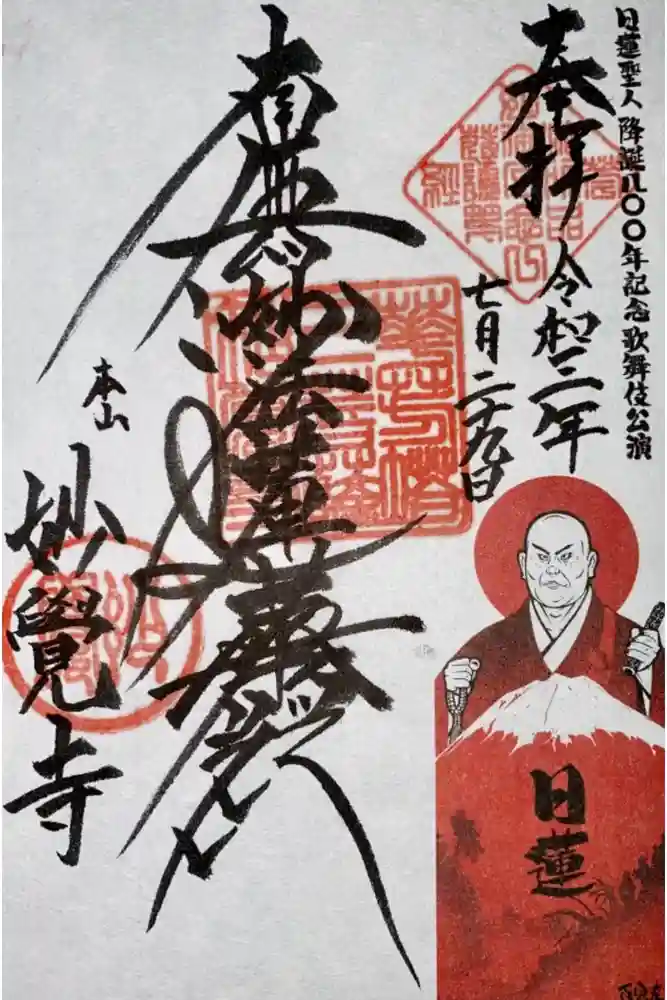 日蓮聖人 降誕八〇〇年記念 歌舞伎公演
奉拝 令和三年
七月二十九日
南無妙法蓮華経
本山
妙覺寺
日蓮